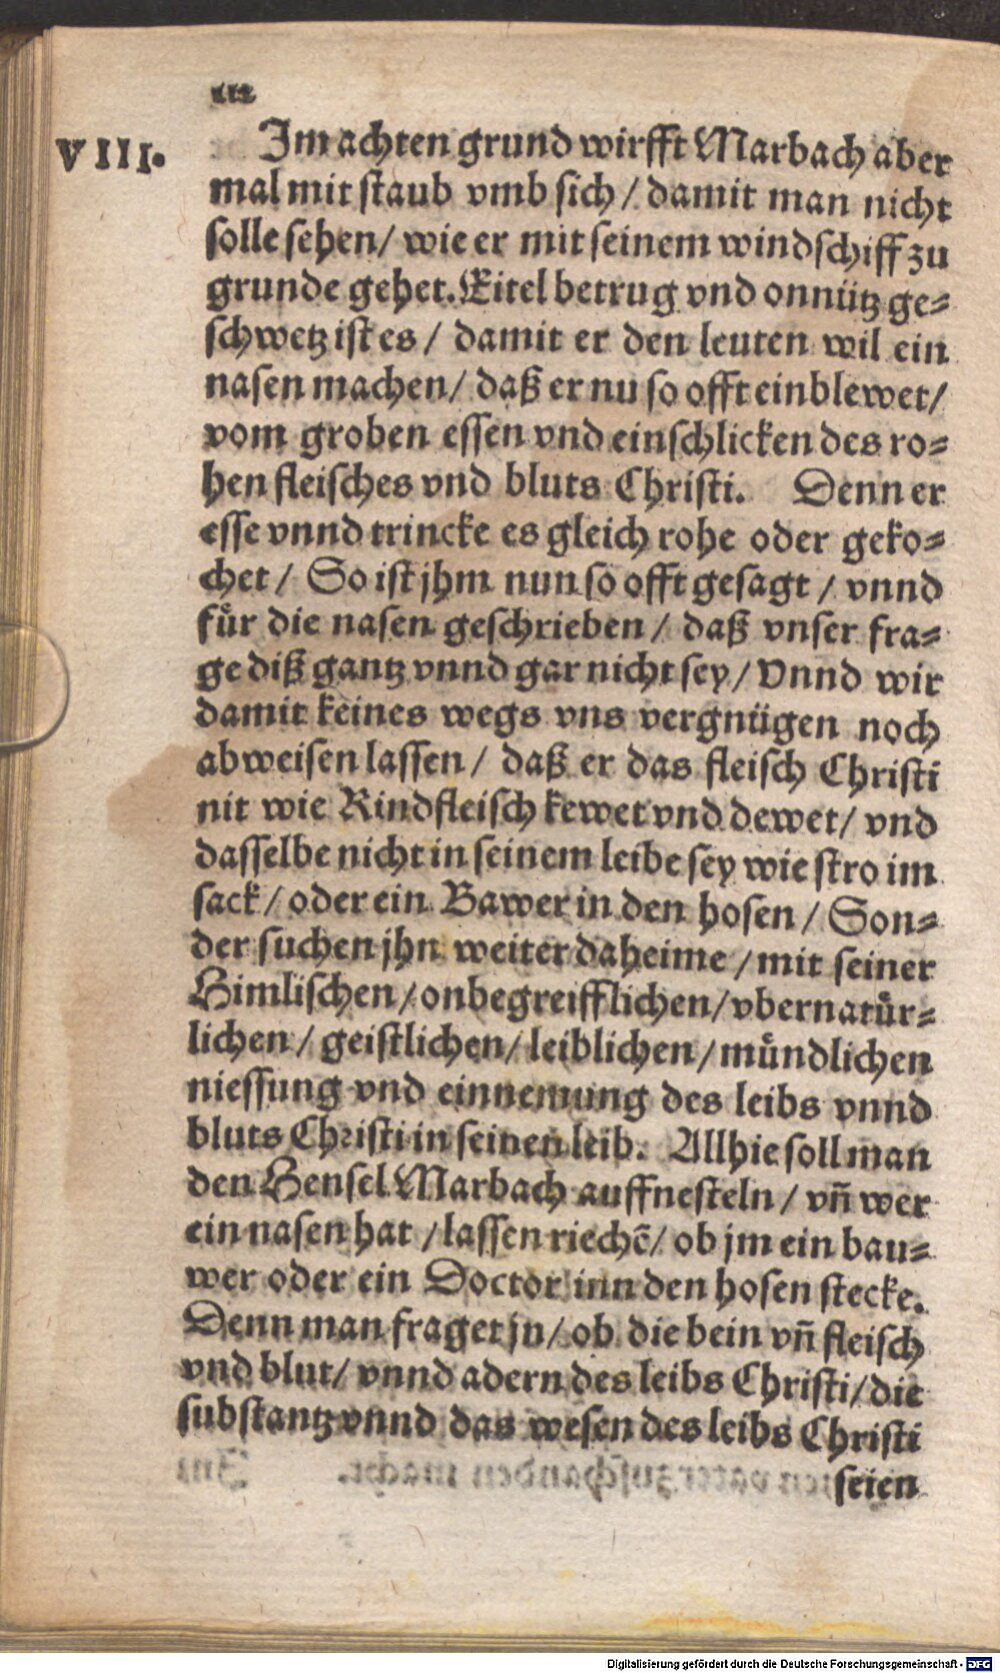 VIII.
Im achten grund wirfft Marbach aber
mal mit staub vmb sich / damit man nicht
solle sehen / wie er mit seinem windschiff zu
grunde gehet. Eitel betrug vnd onnütz ge⸗
schwetz ist es / damit er den leuten wil ein
nasen machen / daß er nu so offt einblewet /
vom groben essen vnd einschlicken des ro⸗
hen fleisches vnd bluts Christi. Denn er
esse vnnd trincke es gleich rohe oder geko⸗
chet / So ist jhm nun so offt gesagt / vnnd
fuͤr die nasen geschrieben / daß vnser fra⸗
ge diß gantz vnnd gar nicht sey / Vnnd wir
damit keines wegs vns vergnügen noch
abweisen lassen / daß er das fleisch Christi
nit wie Rindfleisch kewet vnd dewet / vnd
dasselbe nicht in seinem leibe sey wie stro im
sack / oder ein Bawer in den hosen / Son⸗
der suchen jhn weiter daheime / mit seiner
Himlischen / onbegreifflichen / vbernatuͤr⸗
lichen / geistlichen / leiblichen / muͤndlichen
niessung vnd einnemung des leibs vnnd
bluts Christi in seinen leib. Allhie soll man
den Hensel Marbach auffnesteln / vñ wer
ein nasen hat / lassen riechē / ob jm ein bau⸗
wer oder ein Doctor inn den hosen stecke.
Denn man fraget jn / ob die bein vñ fleisch
vnd blut / vnnd adern des leibs Christi / die
substantz vnnd das wesen des leibs Christi
seien
Digitalisierung gefördert durch die Deutsche Forschungsgemeinschaft - DFG